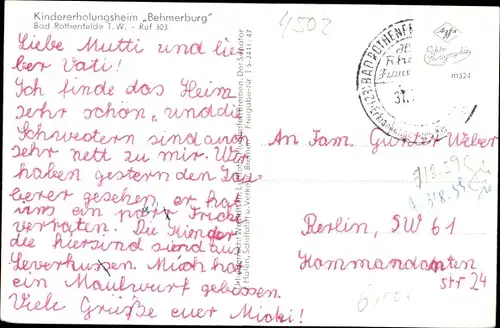 Kindererholungsheim „Behmerburg"
Bad Rothenfelde T.W. - Ruf 303
4502
Liebe Mutti und lie
ber Vati!
Ich finde das Heim
sehr schön, und die
Schwestern sind auch
sehr nett zu mir. Wir
haben gestern den Zau
berer gesehen, er hat
uns ein paar Tricke
verraten. Die Kinder
die hier sind sind aus
Leverkusen. Mich hat
ein Maulwurf gebissen.
Viele Grüße euer Micki!
BAD ROTHENFELDE
31.
Agfa
Echte Photographie
m524
An Fam. Günter Weber
Berlin, SW 61
Kommandanten
str 24